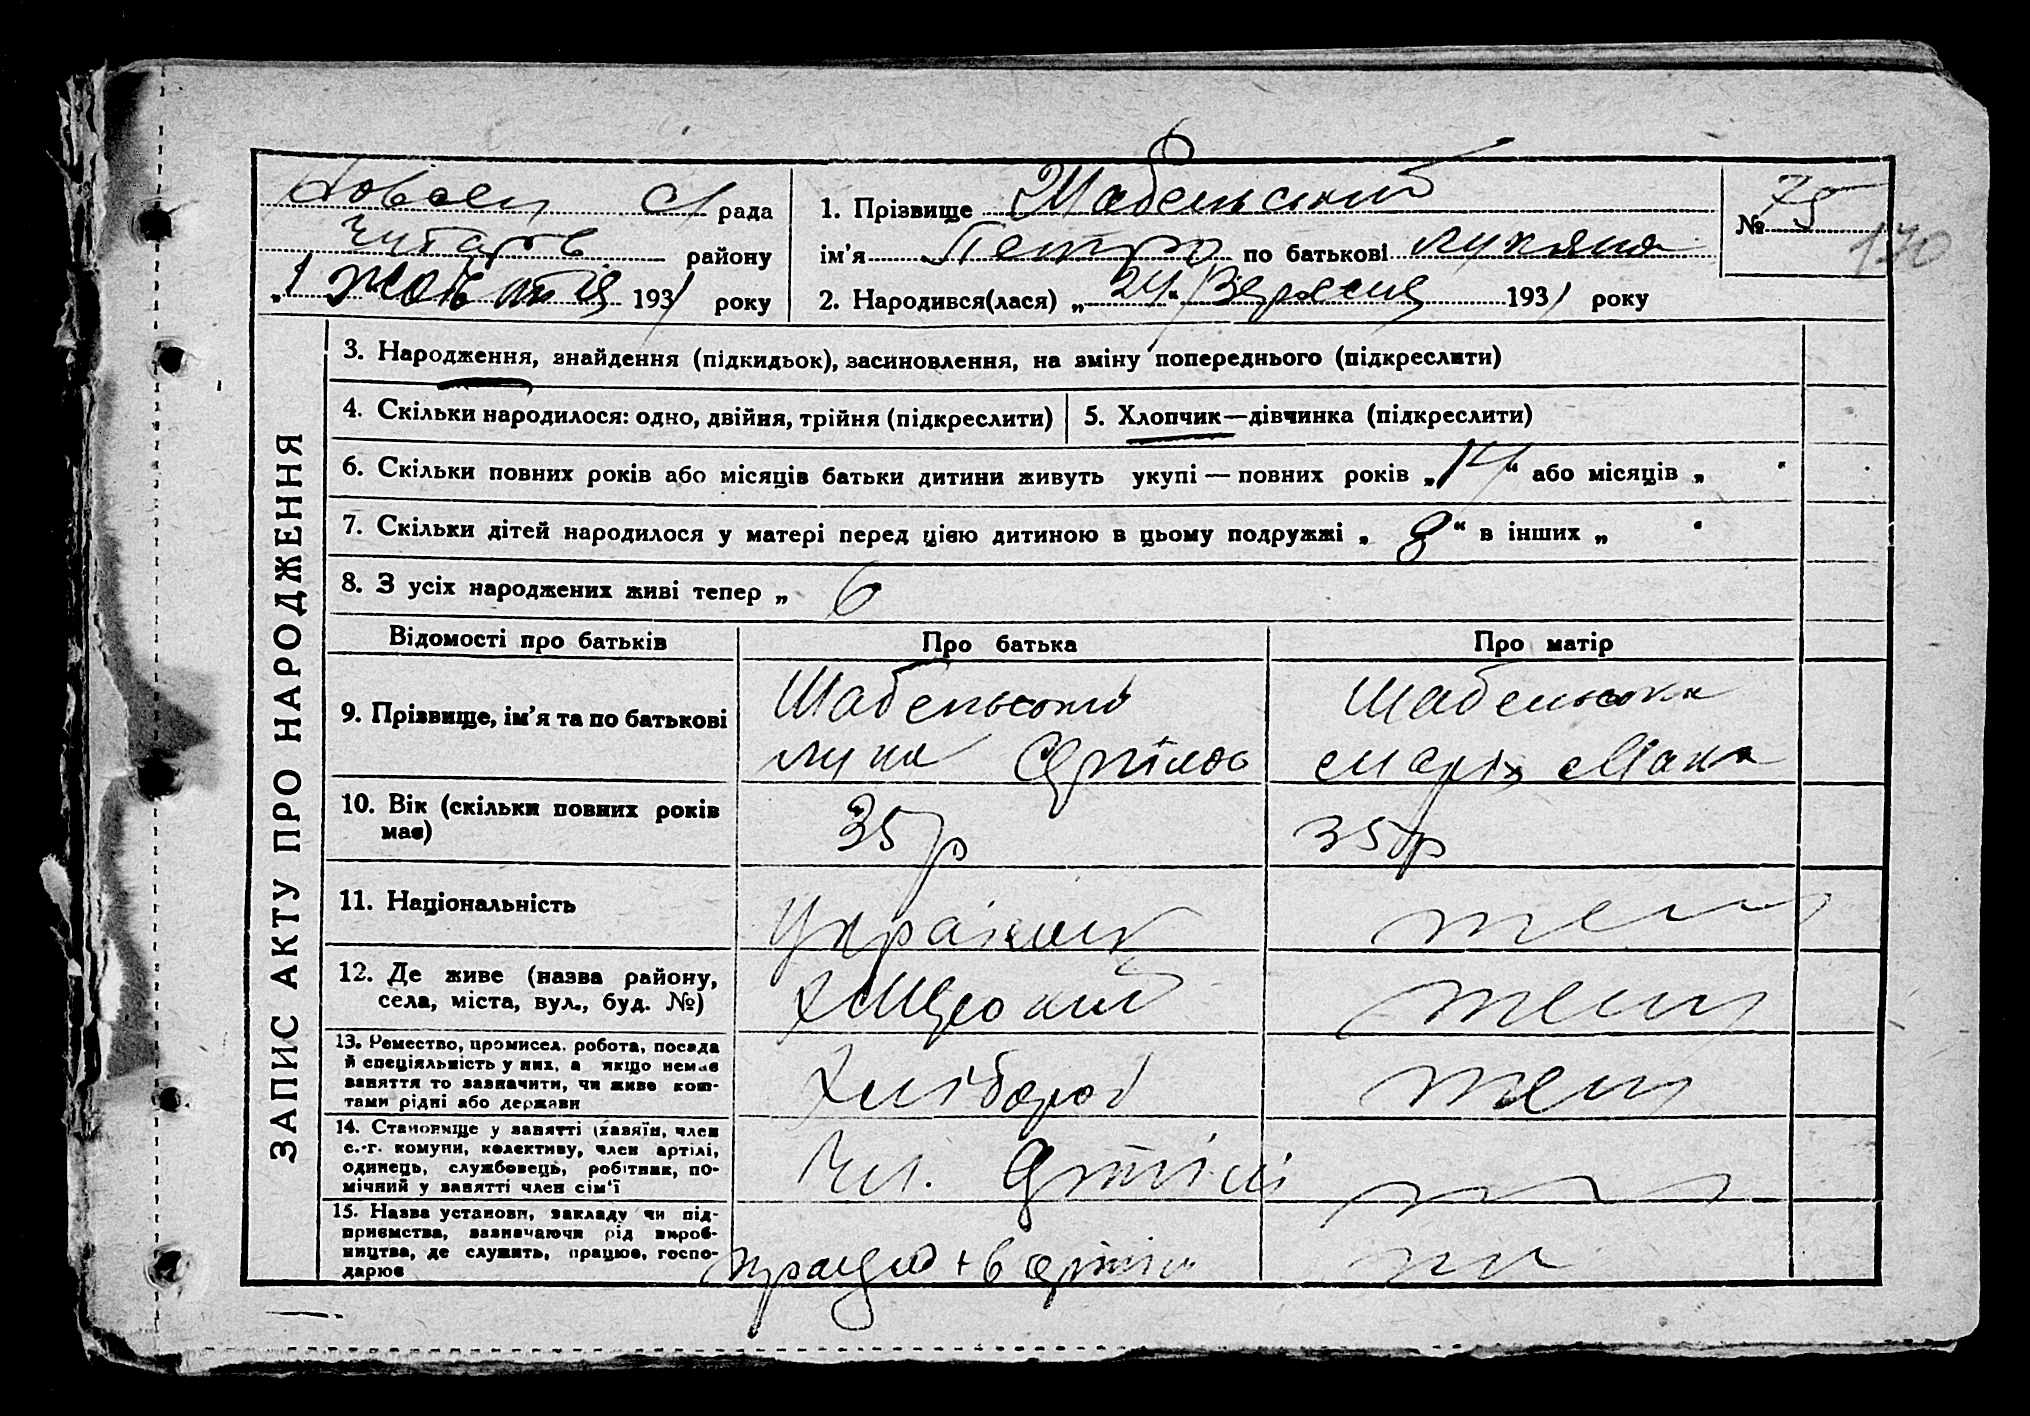 рада
району
„1 Жовтня 1931 року
1. Прізвище Шабельський
ім'я Петро по батькові Лукяна
2. Народився(лася) „24" Вересня 1931 року
№ 75
170
ЗАПИС АКТУ ПРО НАРОДЖЕННЯ
3. Народження, знайдення (підкидьок), засиновлення, на зміну попереднього (підкреслити)
4. Скільки народилося: одно, двійня, трійня (підкреслити)
5. Хлопчик—дівчинка (підкреслити)
6. Скільки повних років або місяців батьки дитини живуть укупі — повних років „14" або місяців „
7. Скільки дітей народилося у матері перед цією дитиною в цьому подружжі „ 8" в інших „
8. З усіх народжених живі тепер „ 6
Відомості про батьків
Про батька
Про матір
9. Прізвище, ім'я та по батькові
Шабельський
Лука
Шабельська
Марія
10. Вік (скільки повних років
має)
35 р
35 р
11. Національність
Українець
12. Де живе (назва району,
села, міста, вул., буд. №)
13. Ремество, промисел. робота, посада
й спеціяльність у них, а якщо немає
заняття то зазначити, чи живе кош-
тами рідні або держави
Хлібороб
14. Становище у занятті (хазяїн, член
с.-г. комуни, колективу, член артілі,
одинець, службовець, робітник, по-
мічний у занятті член сім'ї
Чл. Артілі
15. Назва установи, закладу чи під-
приємства, зазначаючи рід вироб-
ництва, де служить, працює, госпо-
дарює
працює в артілі